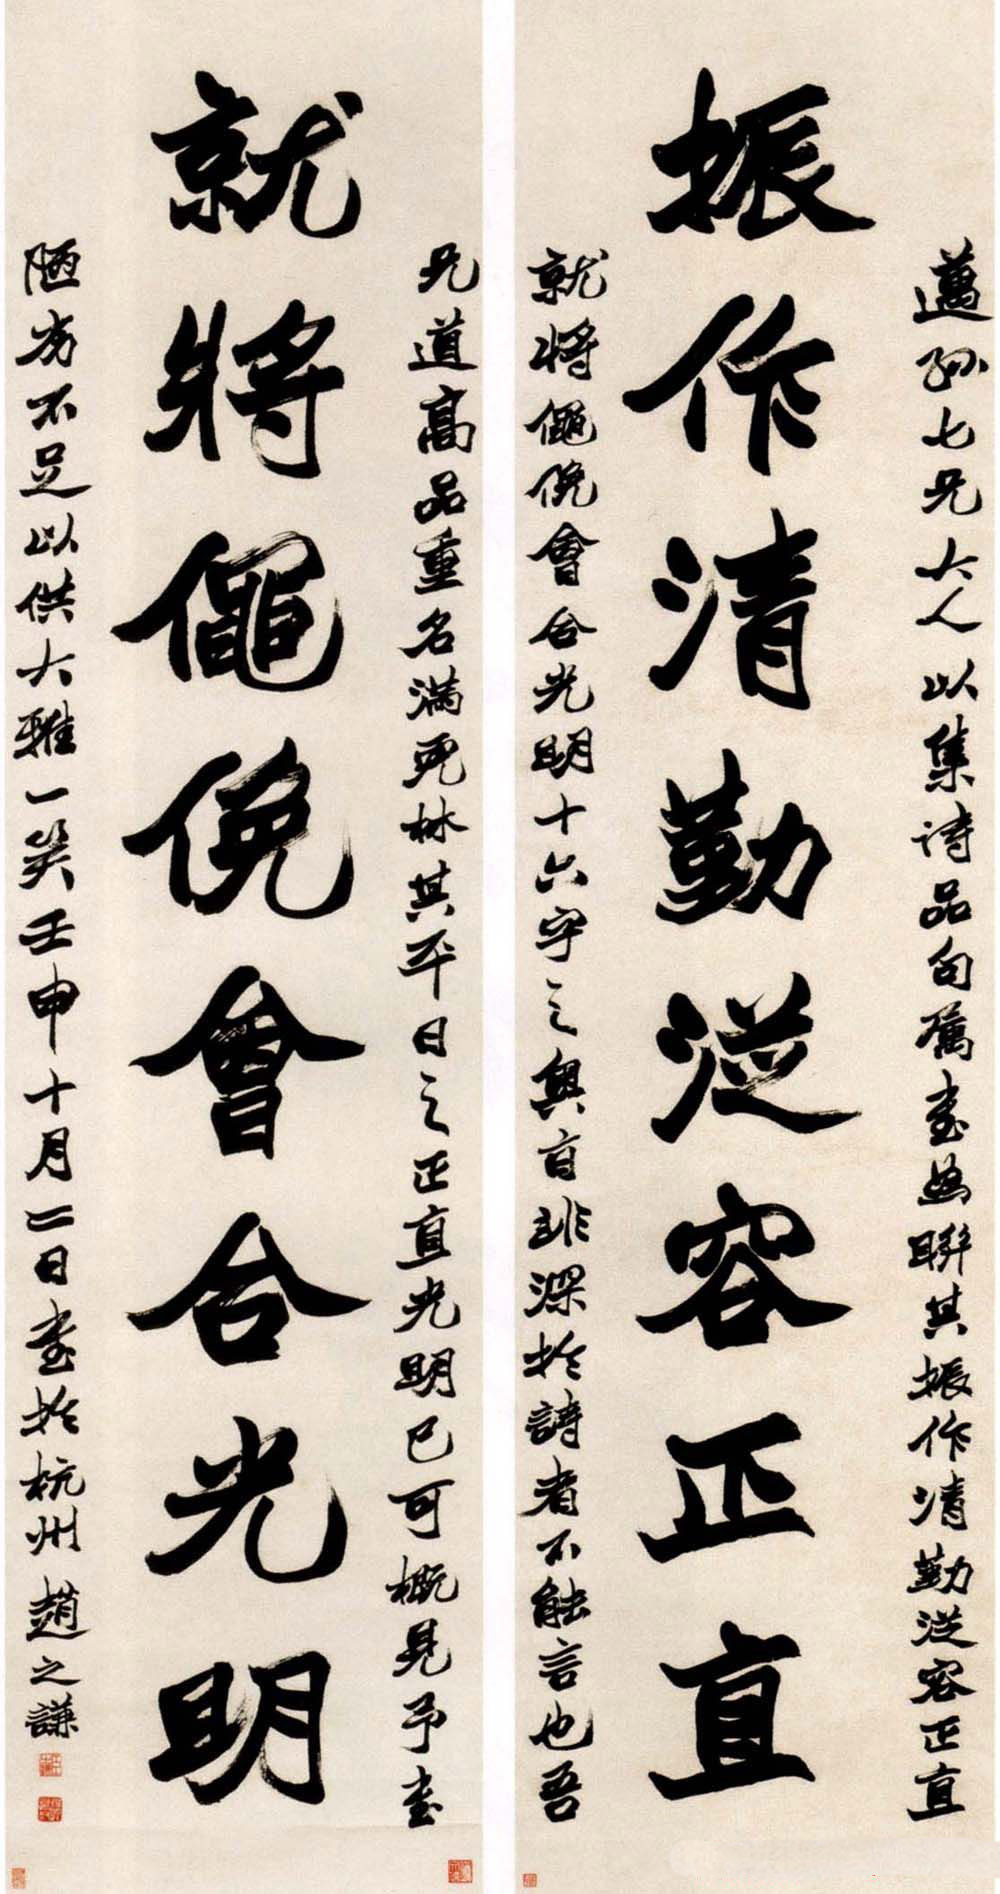 邁孫七兄大人以集詩品句屬書為聯其振作清勤從容正直
振作清勤從容正直
就將僶俛會合光明十六字之奧旨非深於詩者不能言也吾
兄道高品重名滿死林其平日之正直光明已可概見予書
就將僶俛會合光明
陋劣不足以供大雅一笑壬申十月二日書於杭州趙之謙